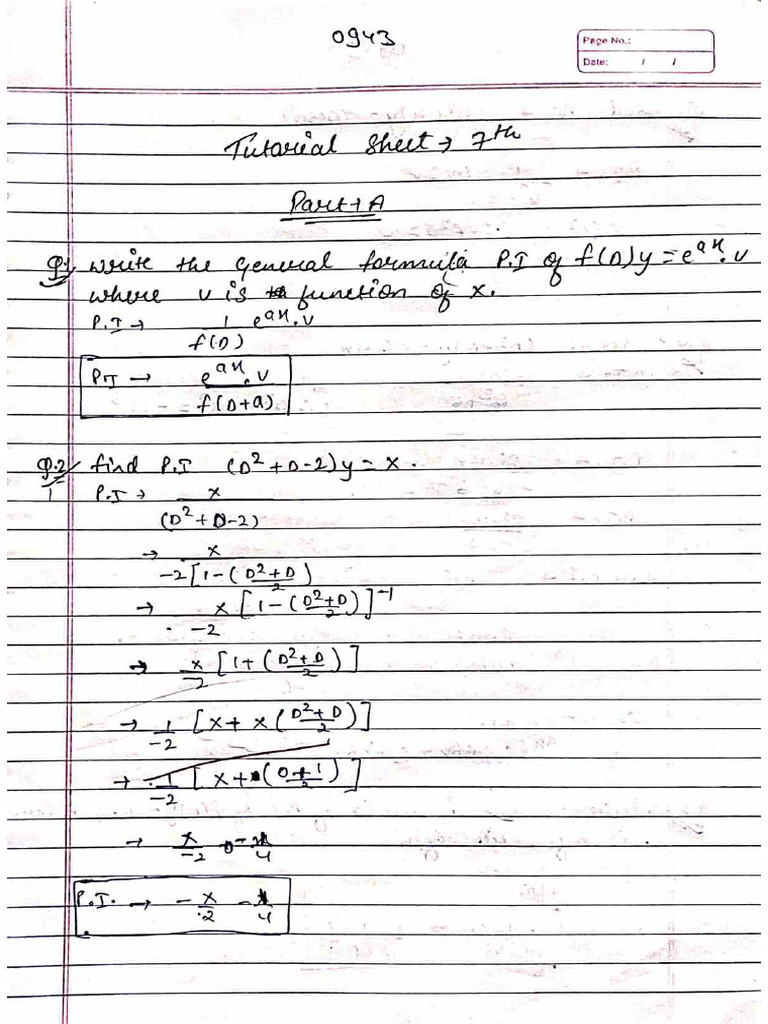 0943
Page No.:
Date: / /
Tutorial Sheet → 7th
Part → A
Q.1 write the general formula P.I of f(D)y = e^ax.v
where v is function of x.
P.I → 1/f(D) e^ax.v
P.I → e^ax.v/f(D+a)
Q.2 find P.I (D²+D-2)y = x.
1 P.I → x/(D²+D-2)
→ x/-2[1-(D²+D/2)
→ x/-2 [1-(D²+D/2)]^-1
→ x/-2 [1+(D²+D/2)]
→ 1/-2 [x + x(D²+D/2)]
→ 1/-2 [x+(0+1/2)]
→ x/-2 - 1/4
P.I. → -x/2 - 1/4